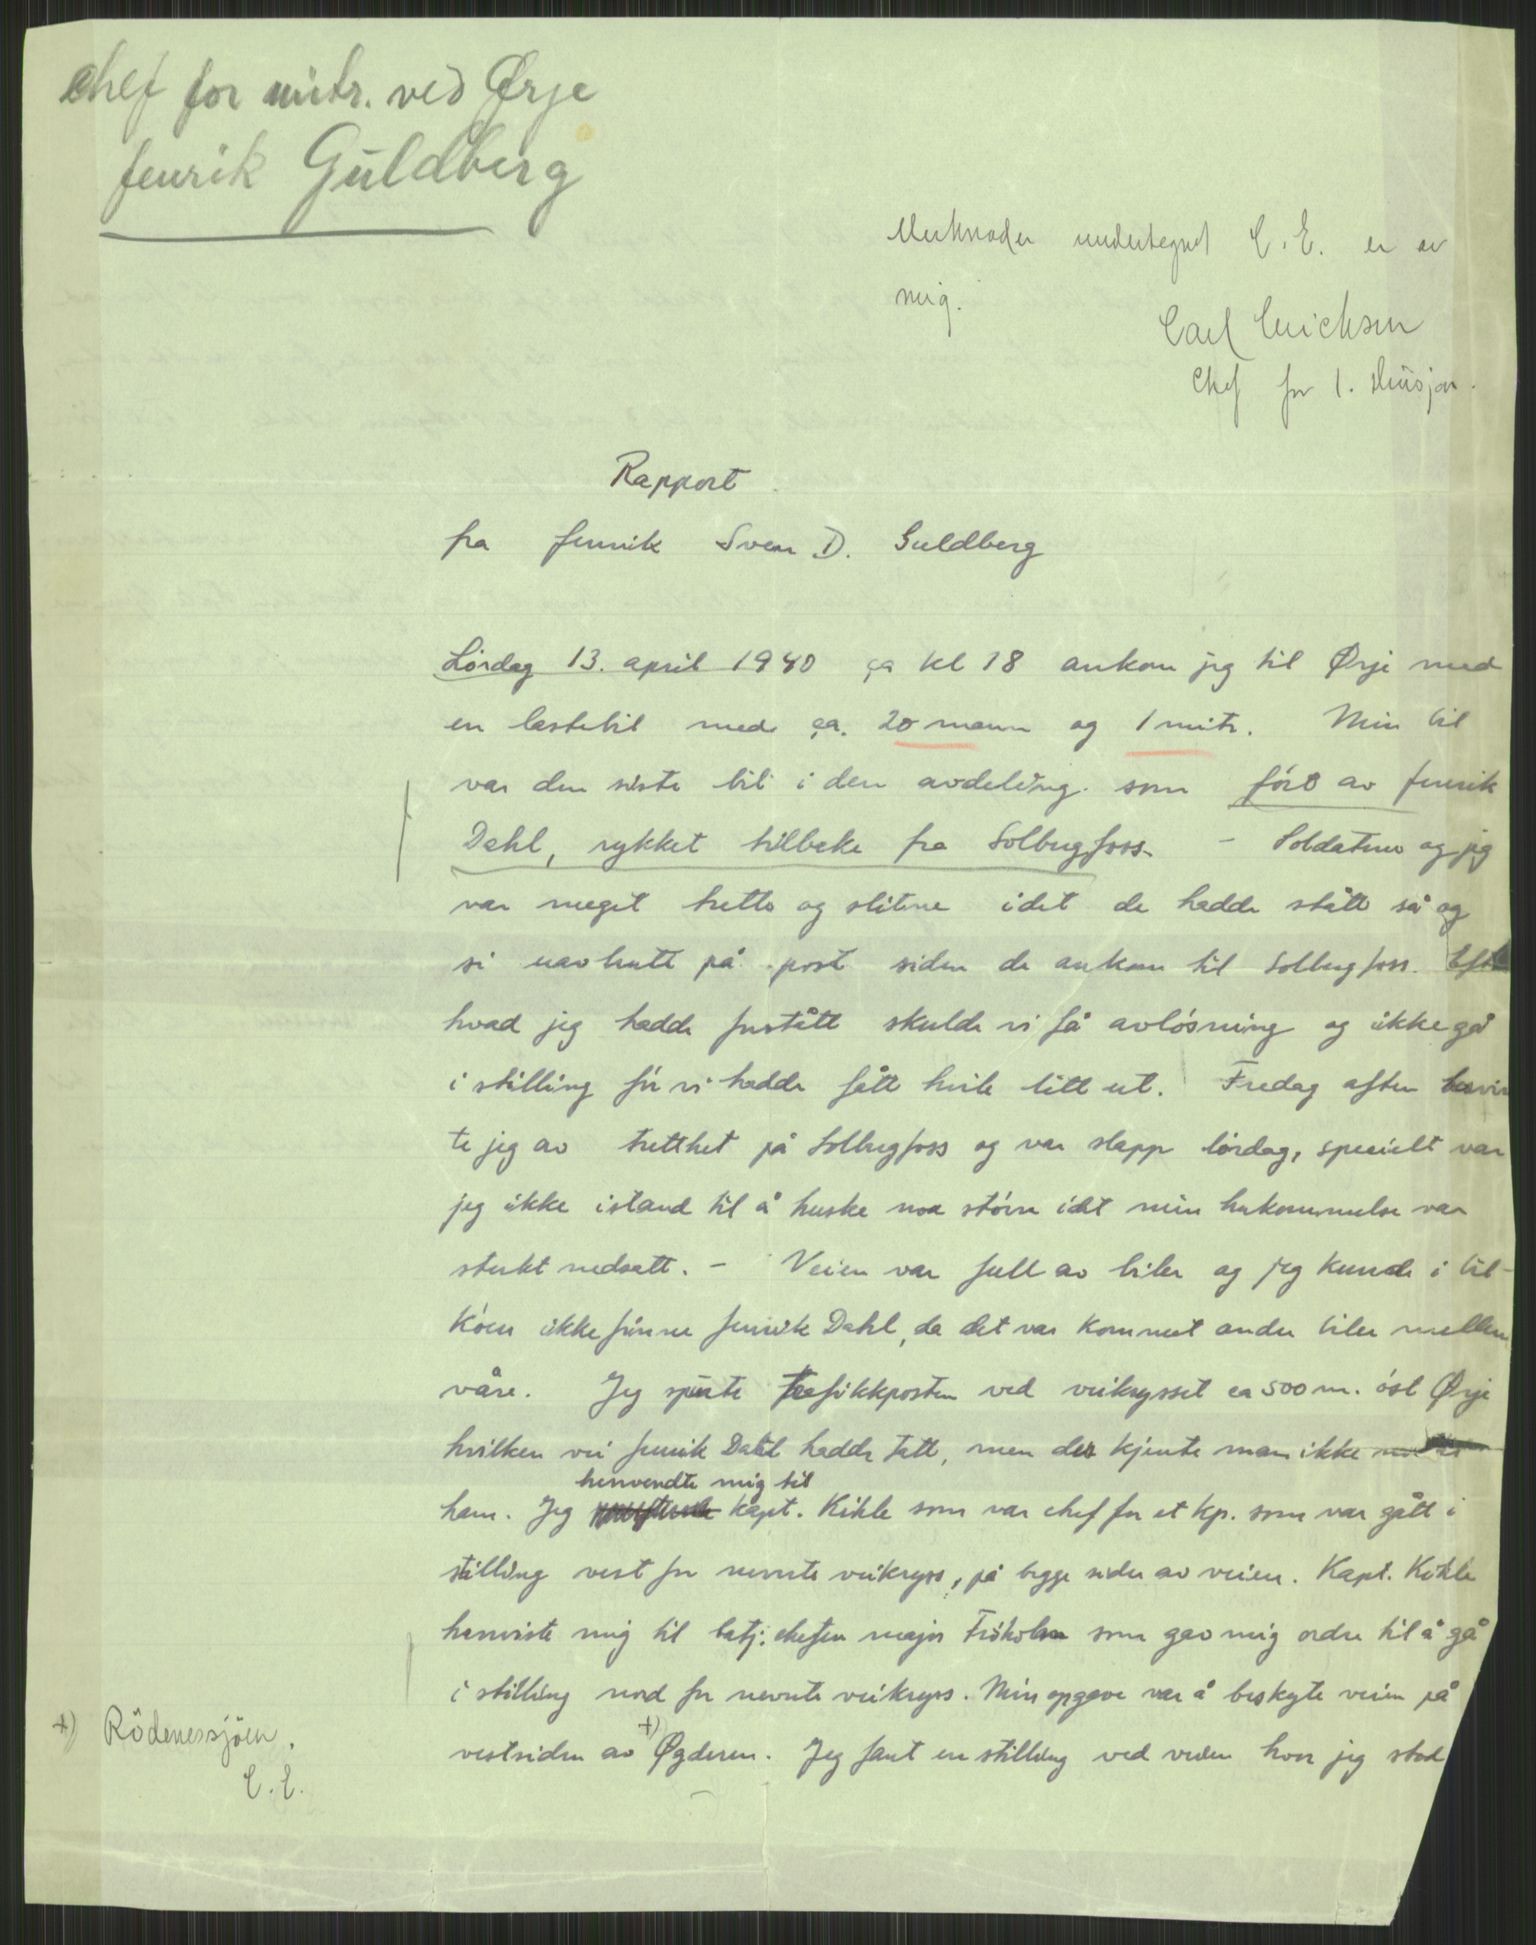 Chef for mitr. ved Ørje
fenrik Guldberg
Merknader undertegnet C.E. er av
mig.
Carl Erichsen
Chef for 1. divisjon.
Rapport
fra fenrik Sven D. Guldberg
Lördag 13. april 1940 ca kl 18 ankom jeg til Ørje med
en lastebil med ca. 20 mann og 1 mitr. Min bil
var den siste bil i den avdeling som fört av fenrik
Dahl, rykket tilbake fra Solbergfoss. - Soldatene og jeg
var meget trette og slitne idet de hadde stått så og
si uavbrutt på post siden de ankom til Solbergfoss. Efter
hvad jeg hadde forstått skulde vi få avlösning og ikke gå
i stilling för vi hadde fått hvile litt ut. Fredag aften besvim
te jeg av tretthet på Solbergfoss og var slapp lördag, specielt var
jeg ikke istand til å huske noe större idet min hukommelse var
sterkt nedsatt. - Veien var full av biler og jeg kunde i bil-
köen ikke finne fenrik Dahl, da det var kommet andre biler mellem
våre. Jeg spurte trafikkposten ved veikrysset ca 500 m. öst Ørje
hvilken vei fenrik Dahl hadde tatt, men der kjente man ikke
henvendte mig til
ham. Jeg kapt. Kihle som var chef for et kp. som var gått i
stilling vest for nevnte veikryss, på begge sider av veien. Kapt. Kihle
henviste mig til batj. chefen major Fröholm som gav mig ordre til å gå
i stilling nord for nevnte veikryss. Min opgave var å beskyte veien på
vestsiden av +) Øgderen. Jeg fant en stilling ved veien hvor jeg stod
+) Rödenessjöen.
C.E.